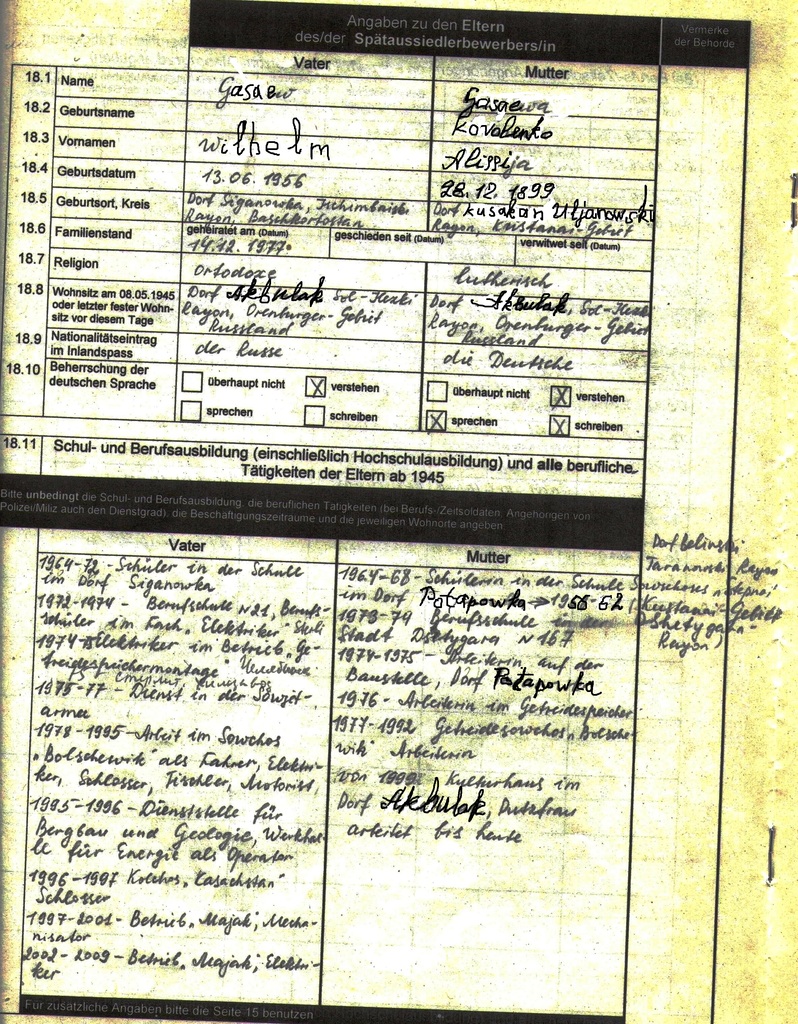 Angaben zu den Eltern
des/der Spätaussiedlerbewerbers/in
Vermerke
der Behörde
Vater Mutter
18.1 Name Gasaew Gasaewa
18.2 Geburtsname Kovalenko
18.3 Vornamen Wilhelm Alissija
18.4 Geburtsdatum 13.06.1956 28.12.1899
18.5 Geburtsort, Kreis Dorf Siganowka, Ischimbaiski Dorf Kusakan Uljanowski
Rayon, Baschkortostan Rayon, Kustanai-Gebiet
18.6 Familienstand geheiratet am (Datum) geschieden seit (Datum) verwitwet seit (Datum)
14.12.1977
18.7 Religion ortodoxe lutherisch
18.8 Wohnsitz am 08.05.1945 Dorf Akbulak Sol-Ilezki Dorf Akbulak, Sol-Ilezki
oder letzter fester Wohn- Rayon, Orenburger-Gebiet Rayon, Orenburger-Gebiet
sitz vor diesem Tage Russland Russland
18.9 Nationalitätseintrag der Russe die Deutsche
im Inlandspass
18.10 Beherrschung der
deutschen Sprache
überhaupt nicht X verstehen überhaupt nicht X verstehen
sprechen schreiben X sprechen X schreiben
18.11 Schul- und Berufsausbildung (einschließlich Hochschulausbildung) und alle berufliche
Tätigkeiten der Eltern ab 1945
Bitte unbedingt die Schul- und Berufsausbildung, die beruflichen Tätigkeiten (bei Berufs-/Zeitsoldaten, Angehörigen von
Polizei/Miliz auch den Dienstgrad), die Beschäftigungszeiträume und die jeweiligen Wohnorte angeben
Vater
1964-72 - Schüler in der Schule
im Dorf Siganowka
1972-1974 - Berufschule N21, Berufs-
schüler im Fach "Elektriker"
1974 Elektriker im Betrieb "Ge-
treidespeichermontage"
1975-77 - Dienst in der Sowjet-
armee
1978-1995 - Arbeit im Sowchos
"Bolschewik" als Fahrer, Elektri-
ker, Schlosser, Tischler, Motorist,
1995-1996 - Dienststelle für
Bergbau und Geologie, Werkha-
lle für Energie als Operator
1996-1997 Kolchos "Kasachstan"
Schlosser
1997-2001 - Betrieb "Majak", Mecha-
nisator
2002-2009 - Betrieb "Majak", Elektri-
ker
Mutter
1964-68 - Schülerin in der Schule
im Dorf Potapowka
1973-74 Berufsschule in der
Stadt Dsetygara N 167
1974-1975 - Arbeiterin auf der
Baustelle, Dorf Potapowka
1976 - Arbeiterin im Getreidespeicher
1977-1992 Getreidesowchos "Bolsche-
wik" Arbeiterin
von 1999 Kulturhaus im
Dorf Akbulak, Putzfrau
arbeitet bis heute
Dorf Belinski
Taranowski Rayon
Kustanai-Gebiet
Rayon)
Für zusätzliche Angaben bitte die Seite 15 benutzen